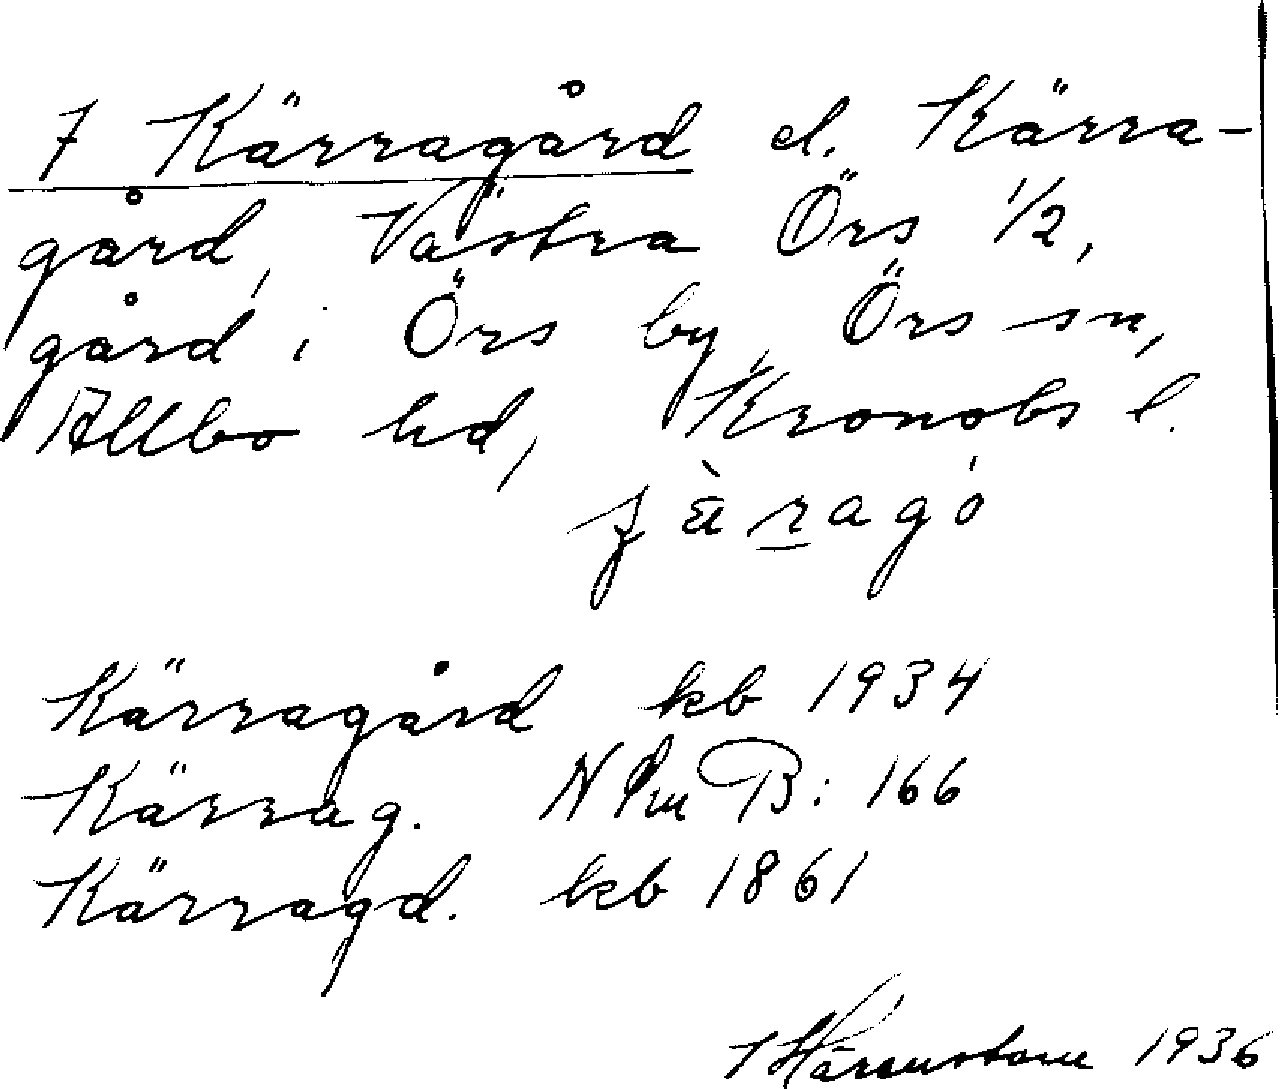 7 Kärragård el. Kärra-
gård, Västra Örs 1/2,
gård i Örs by, Örs sn,
Allbo hd, Kronobs l.
Kärragård kb 1934
Kärrag. N Pm B: 166
Kärragd. kb 1861
1936